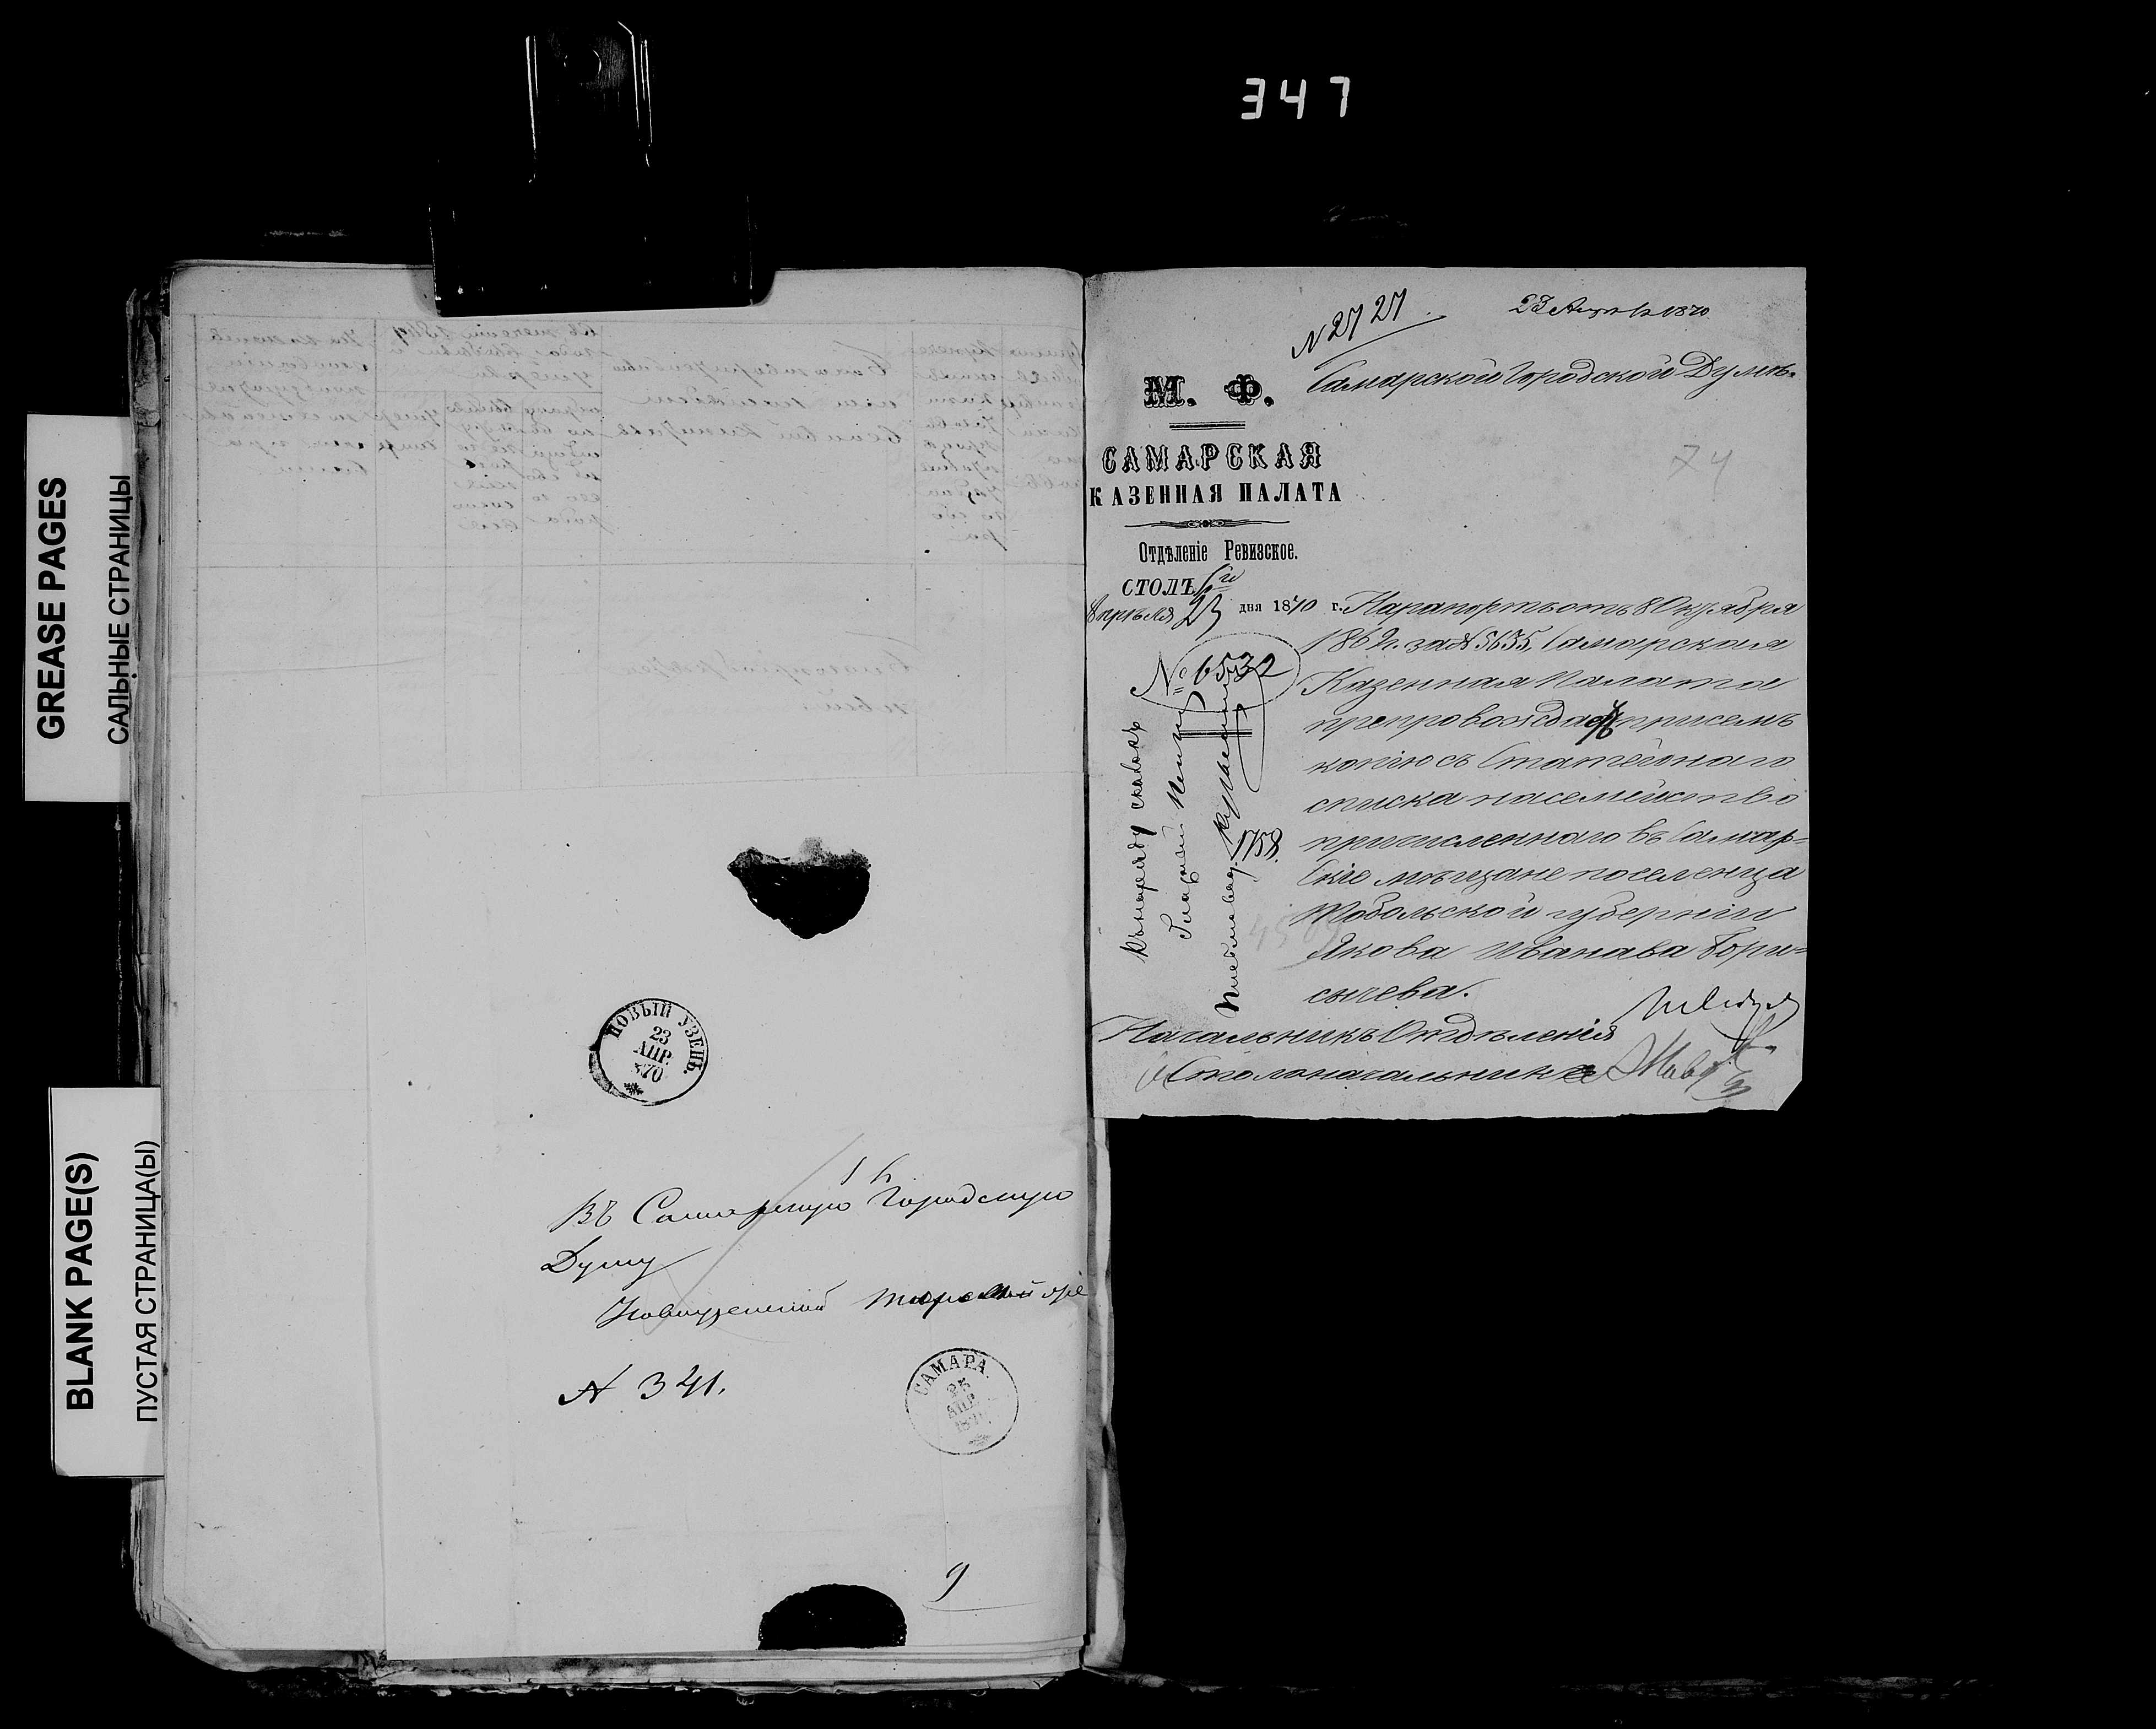 347
GREASE PAGES
САЛЬНЫЕ СТРАНИЦЫ
BLANK PAGE(S)
ПУСТАЯ СТРАНИЦА(Ы)
НОВЫЙ УЗЕНЬ.
23
АПР.
1870
Въ Самарскую Городскую
Думу
Новоузенской
№ 341.
САМАРА.
25
АПР.
1870
9
№ 2727
23 Апрѣля 1870
Самарской Городской Думѣ.
74
М. Ф.
САМАРСКАЯ
КАЗЕННАЯ ПАЛАТА
Отдѣленіе Ревизское.
СТОЛЪ
Апрѣля 23 дня 1870 г.
№ 6532
На рапортъ отъ 8 Октября
186 г. за № 5635, Самарская
Казенная Палата
препровождаетъ при семъ
копію съ Статейнаго
списка на семейство
причисленнаго въ Самар-
скіе мѣщане поселенца
Тобольской губерніи
Якова Иванова Бори-
сычева.
1758.
Начальникъ Отдѣленія
Столоначальникъ